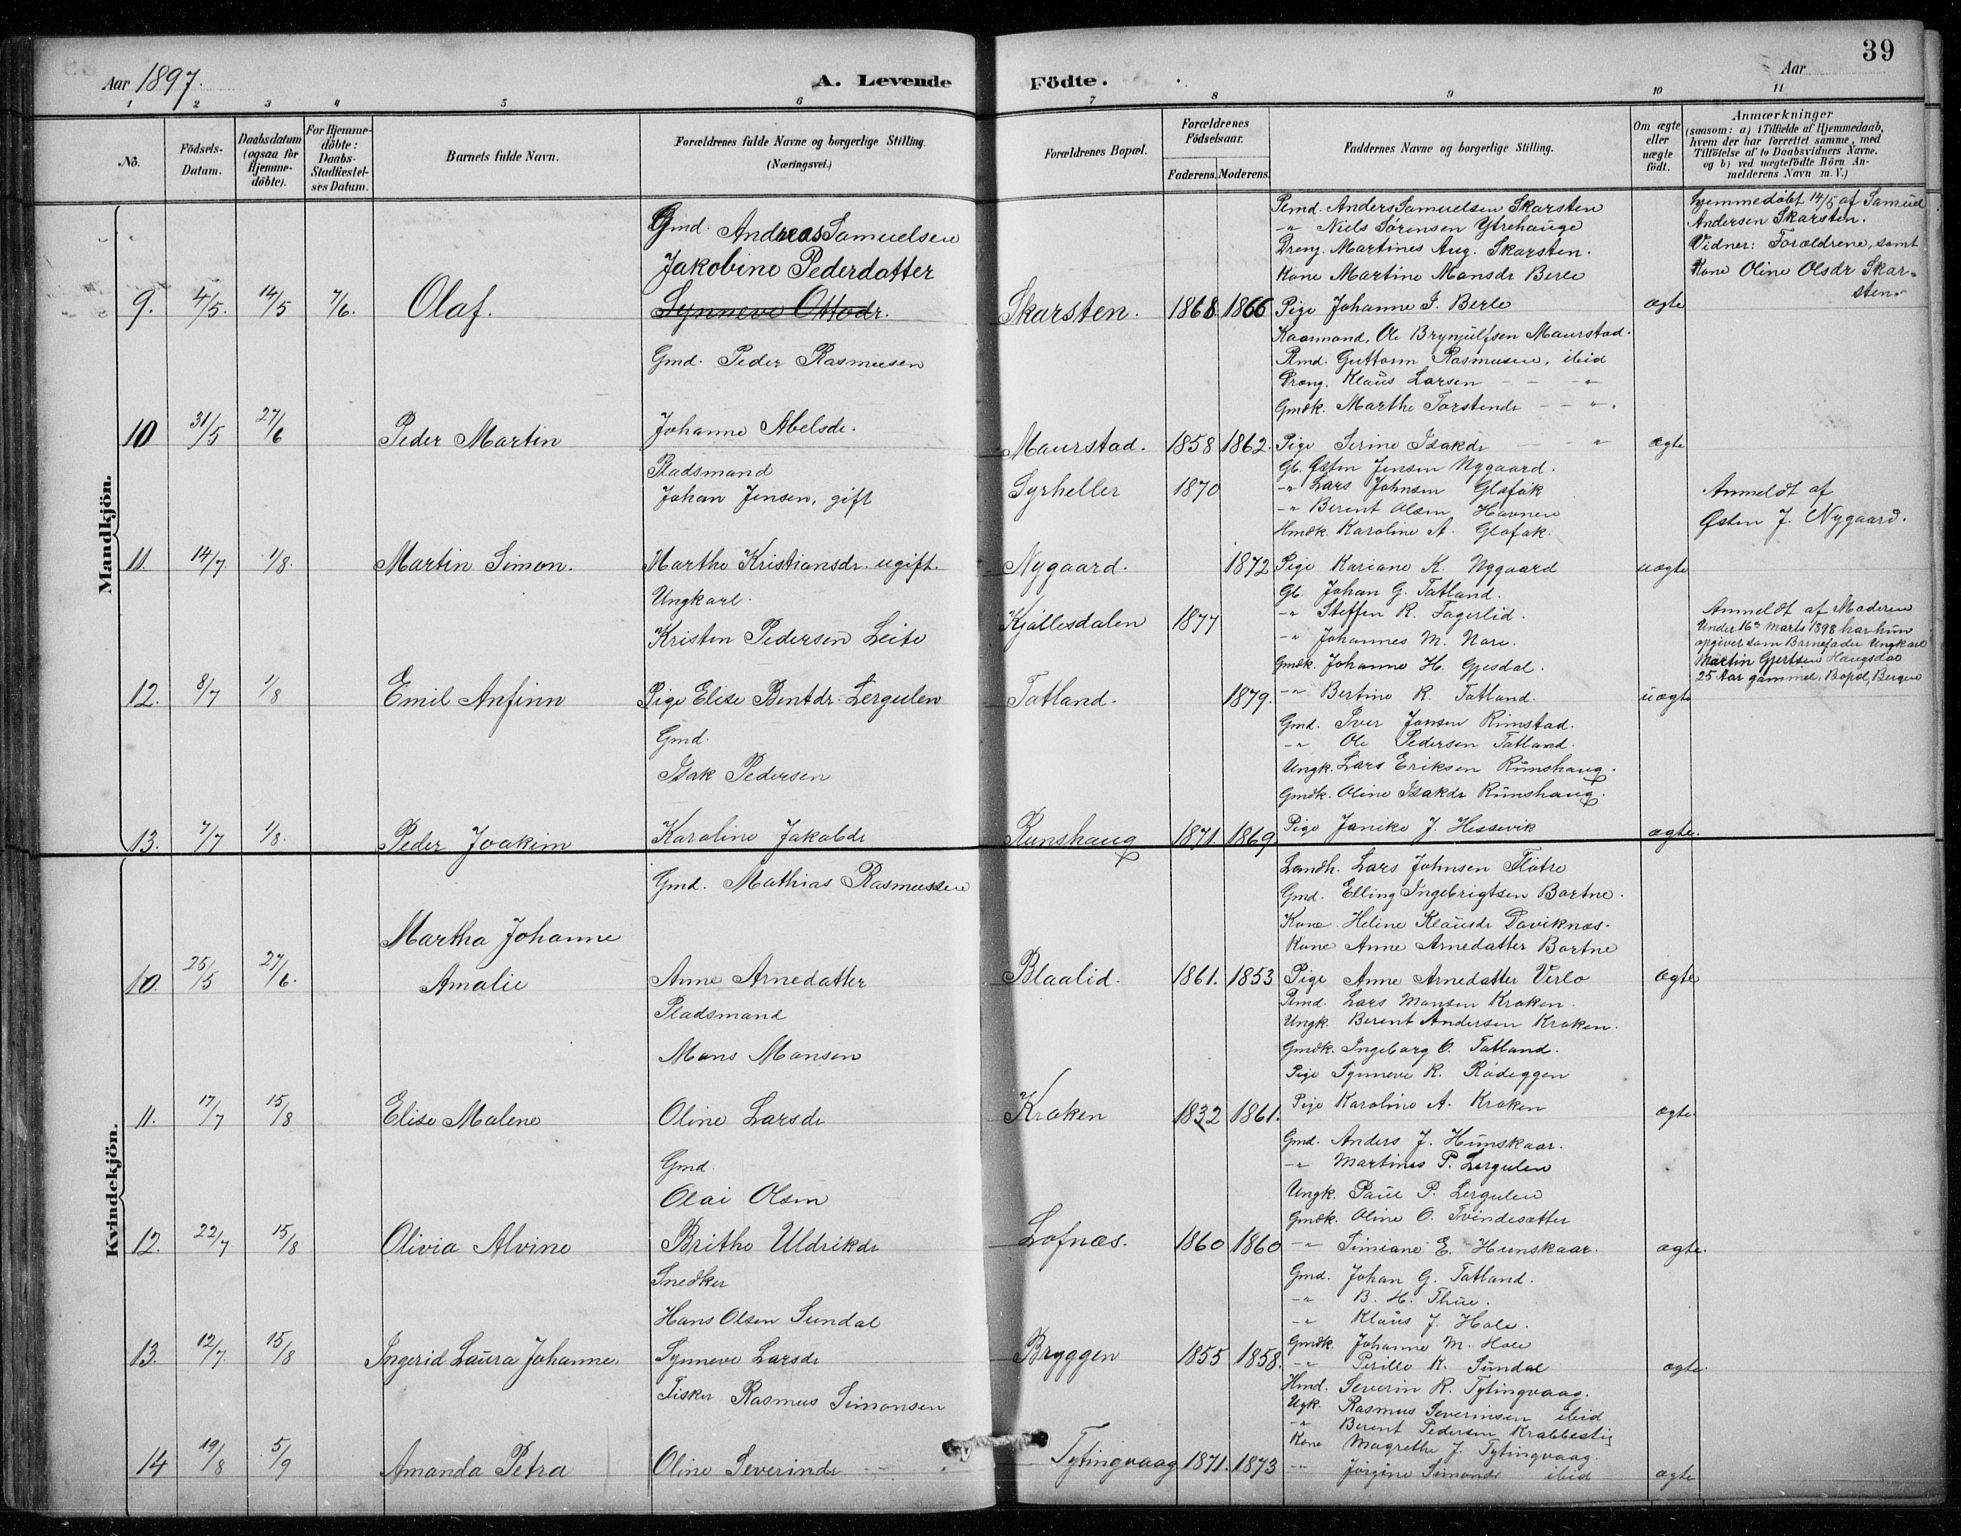 39
Aar 1897. A. Levende Födte. Aar
1 2 3 4 5 6 7 8 9 10 11
No. Födsels-Datum. Daabsdatum (ogsaa for Hjemme-döbte). For Hjemme-döbte: Daabs-Stadfæstel-ses Datum. Barnets fulde Navn. Forældrenes fulde Navne og borgerlige Stilling. (Næringsvei.) Forældrenes Bopæl. Forældrenes Födselsaar. Faderens. Moderens. Faddernes Navne og borgerlige Stilling. Om ægte eller uægte födt. Anmærkninger (saasom: a) i Tilfælde af Hjemmedaab, hvem der har forrettet samme, med Tilföielse af to Daabsvidners Navne, og b) ved uægtefödte Börn An-melderens Navn m. V.)
Mandkjön.
Gmd. Andreas Samuelsen
Jakobine Pederdatter
9. 4/5. 14/5 7/6. Olaf. Synneve Ottodr. Skarsten. 1868 1866 ægte
Pmd. Anders Samuelsen Skarsten
-"- Niels Sørensen Ytrehauge
Dreng. Martines Aug. Skarsten.
Kone Martine Monsdr Berle
Pige Johanne S. Berle
Hjemmedøbt 14/5 af Samuel
Andersen Skarsten.
Vidner: Forældrene, samt
Kone Oline Olsdr Skar-
sten.
Gmd. Peder Rasmusen
10 31/5 27/6 Peder Martin Johanne Abelsdr. Maurstad. 1858 1862. ægte
Kaarmand, Ole Brynjulfsen Maurstad.
Pmd. Guttorm Rasmusen, ibid
Dreng. Klaus Larsen - - "
Gmdk. Marthe Torstendr - - "
Pige Serine Isakdr - - "
Pladsmand
Johan Jensen, gift Syrheller 1870
11. 14/7 1/8. Martin Simon. Marthe Kristiansdr. ugift. Nygaard. 1872 uægte
Gb. Østen Jensen Nygaard.
-"- Lars Johnsen Glofak
-"- Berent Olsen Havnen
Hmdk. Karoline A. Glofak.
Pige Kariane K. Nygaard
Anmeldt af
Østen J. Nygaard.
Ungkarl.
Kristen Pedersen Leite Kjøllesdalen 1877
12. 8/7 1/8 Emil Anfinn Pige Elise Bentdr. Lergulen Totland. 1879. uægte
Gb. Johan G. Totland.
-"- Steffen R. Fagerlid.
-"- Johannes M. Nore.
Gmdk. Johanne H. Gjesdal.
-"- Bertine R. Totland.
Anmeldt af Moderen
Under 16de Marts 1898 har hun
opgivet som Barnefader Ungkarl
Martin Gjertsen Haugsdal
25 Aar gammel, Bopæl, Bergen
Gmd.
Isak Pedersen
13. 7/7 1/8. Peder Joakim Karoline Jakobdr Runshaug 1871. 1869. ægte.
Gmd. Iver Jansen Rimstad.
-"- Ole Pedersen Totland.
Ungk. Lars Eriksen Runshaug.
Gmdk. Oline Isakdr Runshaug.
Pige Janike J. Hessevik
Kvindekjön.
Gmd. Mathias Rasmussen
Martha Johanne
10. 25/5 27/6. Amalie Anne Arnedatter Blaalid. 1861. 1853 ægte
Landh. Lars Johnsen Flotre
Gmd. Elling Ingebrigtsen Bortne.
Kone Heline Klausdr Daviknæs.
Kone Anne Arnedatter Bortne
Pige Anne Arnedatter Verlo
Pladsmand
Mons Monsen
11. 17/7 15/8 Elise Malene Oline Larsdr Kroken 1832 1861. ægte
Pmd. Lars Monsen Kroken.
Ungk. Berent Andersen Kroken.
Gmdk. Ingeborg O. Totland.
Pige Synneve R. Rødeggen
Pige Karoline A. Kroken
Gmd.
Olai Olsen
12. 22/7 15/8 Olivia Alvine Brithe Uldrikdr Lofnæs. 1860 1860 ægte.
Gmd. Anders J. Hunskaar.
-"- Martines P. Lergulen
Ungk. Paul P. Lergulen
Gmdk. Oline O. Tvindesætter
-"- Simiane E. Hunskaar.
Snedker
Hans Olsen Sundal
13. 12/7. 15/8 Ingerid Laura Johanne. Synneve Larsdr Bryggen 1855 1858. ægte.
Gmd. Johan G. Totland.
-"- B. H. Thue.
-"- Klaus J. Hole.
Gmdk. Johanne M. Hole
-"- Perille K. Sundal
Fisker Rasmus Simonsen
14 19/8 5/9 Amanda Petra Oline Severindr Tytingvaag 1871. 1873 ægte
Hmd. Severin R. Tytingvaag.
Ugk. Rasmus Severinsen ibid
-"- Berent Pedersen Krabbestig
Kone Magrethe J. Tytingvaag
-"- Jørgine Simonsdr ibid